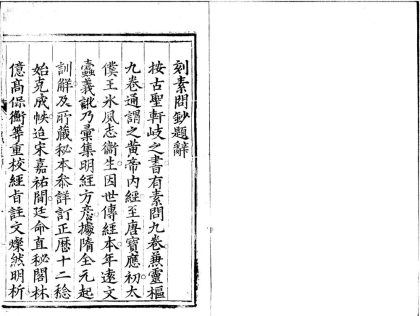 刻素問鈔題辭
按古聖軒岐之書有素問九卷兼靈樞
九卷通謂之黃帝內經至唐寶應初太
僕王氷風志衞生因世傳經本年遠文
蠧義訛乃彚集明經方彥據隋全元起
訓觧及所藏秘本叅詳訂正曆十二稔
始克成帙迨宋嘉祐間廷命直秘閣林
億高保衡等重校經旨註文燦然明析